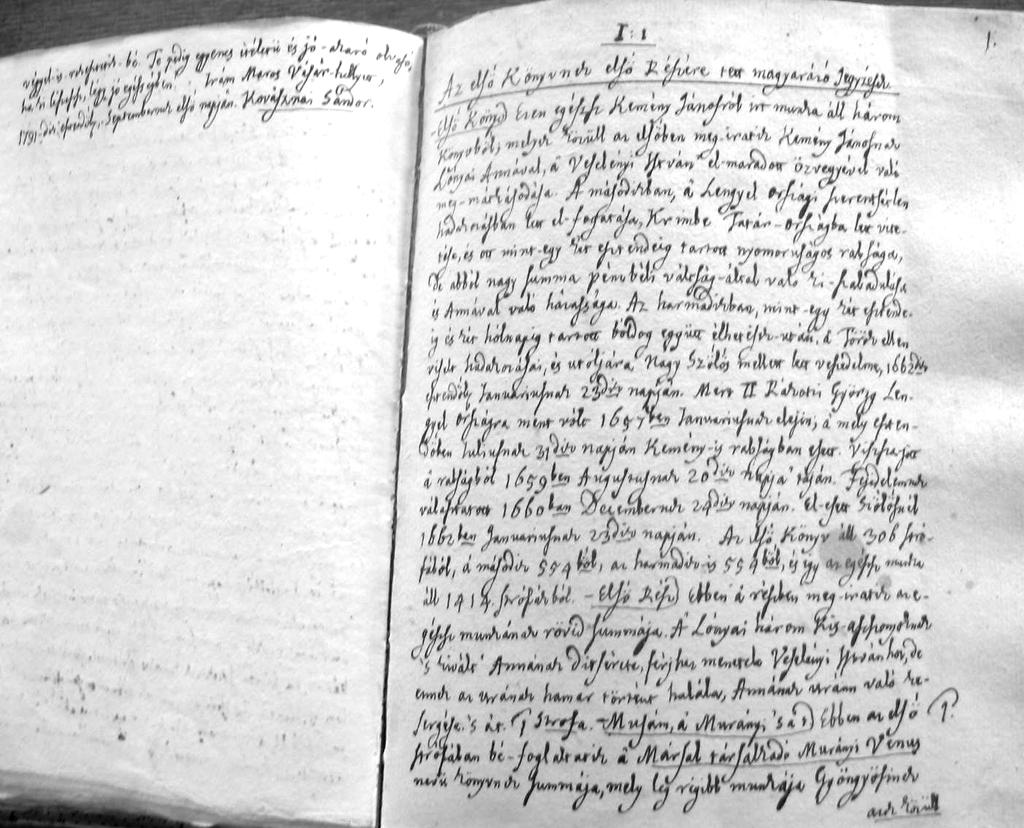 véggel is rekesztek-bé. Te pedig egyenes ítéletü és jó-akaró olvasó,
ha ki lehetsz, légy jó egésségben. Irám Maros Vásár-hellyen,
1791-dik esztendőb. Septembernek első napján. Kovásznai Sándor.
I: 1
1.
Az első Könyvnek első Részére tett magyarázó Jegyzések
-Első Könyv) Ezen egéssz Kemény Jánosról írt munka áll három
Könyvből, melyek közzül az elsőben meg-iratik Kemény Jánosnak
Lónyai Annával, a Veselényi István el-maradott özvegyével való
meg-mátkásodása. A másodikban, á Lengyel országi szerentsétlen
hadakozásban lett el-fogatása, Krimbe Tatár-országba lett vite-
tése, és ott mint-egy két esztendeig tartott nyomoruságos rabsága,
de abból nagy summa pénzbéli váltság-által való ki-szabadulása
és Annával való házassága. Az harmadikban, mint-egy két esztende-
ig és két hólnapig tartott boldog együtt élhetések-után, á Török ellen
viselt hadakozásai, és utóljára Nagy Szőlős mellett lett veszedelme, 1662dik
esztendőb. Januariusnak 23dik napján. Mert II Rákotzi György Len-
gyel országra ment vólt 1657ben Januariusnak elején, á mely eszten-
dőben Juliusnak 31dik napján Kemény-is rabságban esett. Vissza jött
á rabságból 1659ben Augustusnak 20dik napja' táján. Fejedelemnek
választatott 1660ban Decembernek 24dik napján. El-esett Szőlősnél
1662ben Januariusnak 23dik napján. Az első Könyv áll 306 stró-
fából, á második 554ből, az harmadik-is 554ből, és így az egéssz munka
áll 1414 strófákból. -Első Rész) Ebben á részben meg-iratik az e-
géssz munkának rövid summája. A Lónyai három Kis-asszonyoknak
's kivált' Annának ditsérete, férjhez menetele Veselényi Istvánhoz, de
ennek az urának hamar történt halála, Annának urán való ke-
sergése 's át. 1 Strofa. -Musám, á Murányi 's á t) Ebben az első 1.
strófában bé-foglaltatik á Mársal társalkodó Murányi Venus
nevű könyvnek summája, mely leg régibb munkája Gyöngyösinek
azok közzül